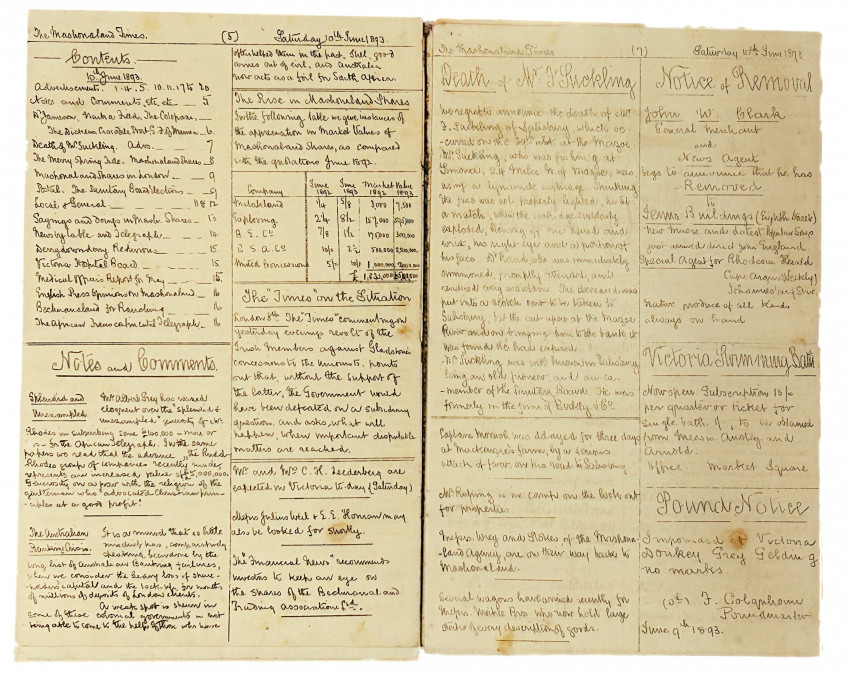 The Mashonaland Times.
(5)
Saturday 10th June 1893.
Contents.
10th June 1893.
Advertisements. 1. 4. 5. 10. 11. 17 to 20
Notes and Comments, etc. etc. - 5
Dr Jameson,
The Dickens Crocodile - 6.
Death of Mr Suckling. Advs. 7
The Merry Spring Tide. Mashonaland Shares - 8
Mashonaland Shares in London - 9
Postal. The Sanitary Board Elections - 9
Local & General 11 & 12
Sayings and Doings in Mash: Shares - 13
News by Cable and Telegraph - 14
Derrydowndory Rederivus - 15
Victoria Hospital Board - 15
Medical Officers Report for May - 15.
English Press Opinions on Mashonaland - 16
Bechuanaland for Ranching - 16
The African Transcontinental Telegraph - 16
Notes and Comments.
Splendid and
Unexampled
Mr Albert Grey has waxed
eloquent over the "splendid &
unexampled" generosity of Mr
Rhodes in subscribing some £100,000 - more or
- for the African Telegraph. In the same
papers we read that the advance "the Rudd
Rhodes group of companies" recently made,
represents an increased value of £5,000,000.
Generosity on a par with the religion of the
gentleman who "advocated Christian prin-
ciples at a good profit".
The Australian
Banking Crisis.
It is a marvel that so little
has, comparatively
speaking, been done by the
long list of Australian Banking failures,
when we consider the heavy loss of share-
holders' capital and the lock up for months
of millions of deposits of London clients.
A weak spot is shewn in
some of these colonial governments in not
being able to come to the help of those who have
often helped them in the past. Still, good
comes out of evil, and Australia
now acts as a foil for South Africa.
The Rise in Mashonaland Shares
In the following table we give instances of
the appreciation in Market Values of
Mashonaland Shares, as compared
with the quotations June 1892.
Company June 1892 June 1893 Market Value 1892 1893
Matabeleland 1/4 5/8 3,000 7,500
Exploring 2 1/4 8 1/2
B. E. Co 7/8 1 1/2 175000 300,000
B S A. Co 10/- 2 1/2 500,000 2,500,000
United Concessions 5/- 10/- 1,000,000 2,000,000
The "Times" on the Situation
London 8th. The "Times" commenting on
yesterday evenings revolt of the
Irish Members against Gladstone's
concessions to the Unionists, points
out that, without the support of
the latter, the Government would
have been defeated on a subsidiary
question, and asks what will
happen, when important disputable
matters are reached.
Mr and Mrs C. H. Zeederberg are
expected in Victoria to-day (Saturday)
Messrs Julius Weil & E. E. Homan may
also be looked for shortly.
The "Financial News" recommends
investors to keep an eye on
the shares of the Bechuanal and
Trading Association Ltd.
The Mashonaland Times
(7)
Saturday 10th June 1893
Death of Mr F Suckling
We regret to announce the death of Mr
F. Suckling of Salisbury, which oc-
curred on the 29th ult. at the Mazoe.
Mr Suckling, who was fishing at
24 miles N. of Mazoe, was
using a dynamite cartridge. Thinking
the fuse was not properly lighted, he lit
a match, when the cartridge suddenly
exploded, blowing off one hand and
wrist, his right eye and a portion of
his face. Dr Rand, who was immediately
summoned promptly attended, and
rendered every assistance. The deceased was
put into a Scotch cart to be taken to
Salisbury, but the cart upset at the Mazoe
River and on bringing him to the bank it
was found he had expired.
Mr Suckling was well known in Salisbury
being an old pioneer and an ex
-member of the Sanitary Board. He was
formerly in the firm of Biddley & Co.
Captain Morrish was delayed for three days
at Mackenzie's farm, by a serious
attack of fever, on his road to Salisbury
Mr Ruping is in camp on the look out
for properties
Messrs Wrey and Stokes of the Mashona-
land Agency, are on their way back to
Mashonaland.
Several wagons have arrived recently for
Messrs. Meikle Bros. who now hold large
stocks of every description of goods.
Notice of Removal
John W. Clark
General Merchant
and
News Agent
begs to announce that he has
Removed
to
Ferris Buildings (Eighth Street)
New Music and latest Popular Songs
just received direct from England
Special Agent for Rhodesia Herald
Cape Argus (Weekly)
Johannesburg Star.
Native produce of all kinds
always on hand
Victoria Swimming Bath
Now open. Subscription 15/-
per quarter or ticket for
single bath, 1/-, to be obtained
from Messrs. Austey and
Arnold.
Office, Market Square
Pound Notice
Impounded at Victoria
Donkey Grey Gelding
no marks.
(sd) F. Colquhoun
Poundmaster
June 9th 1893.